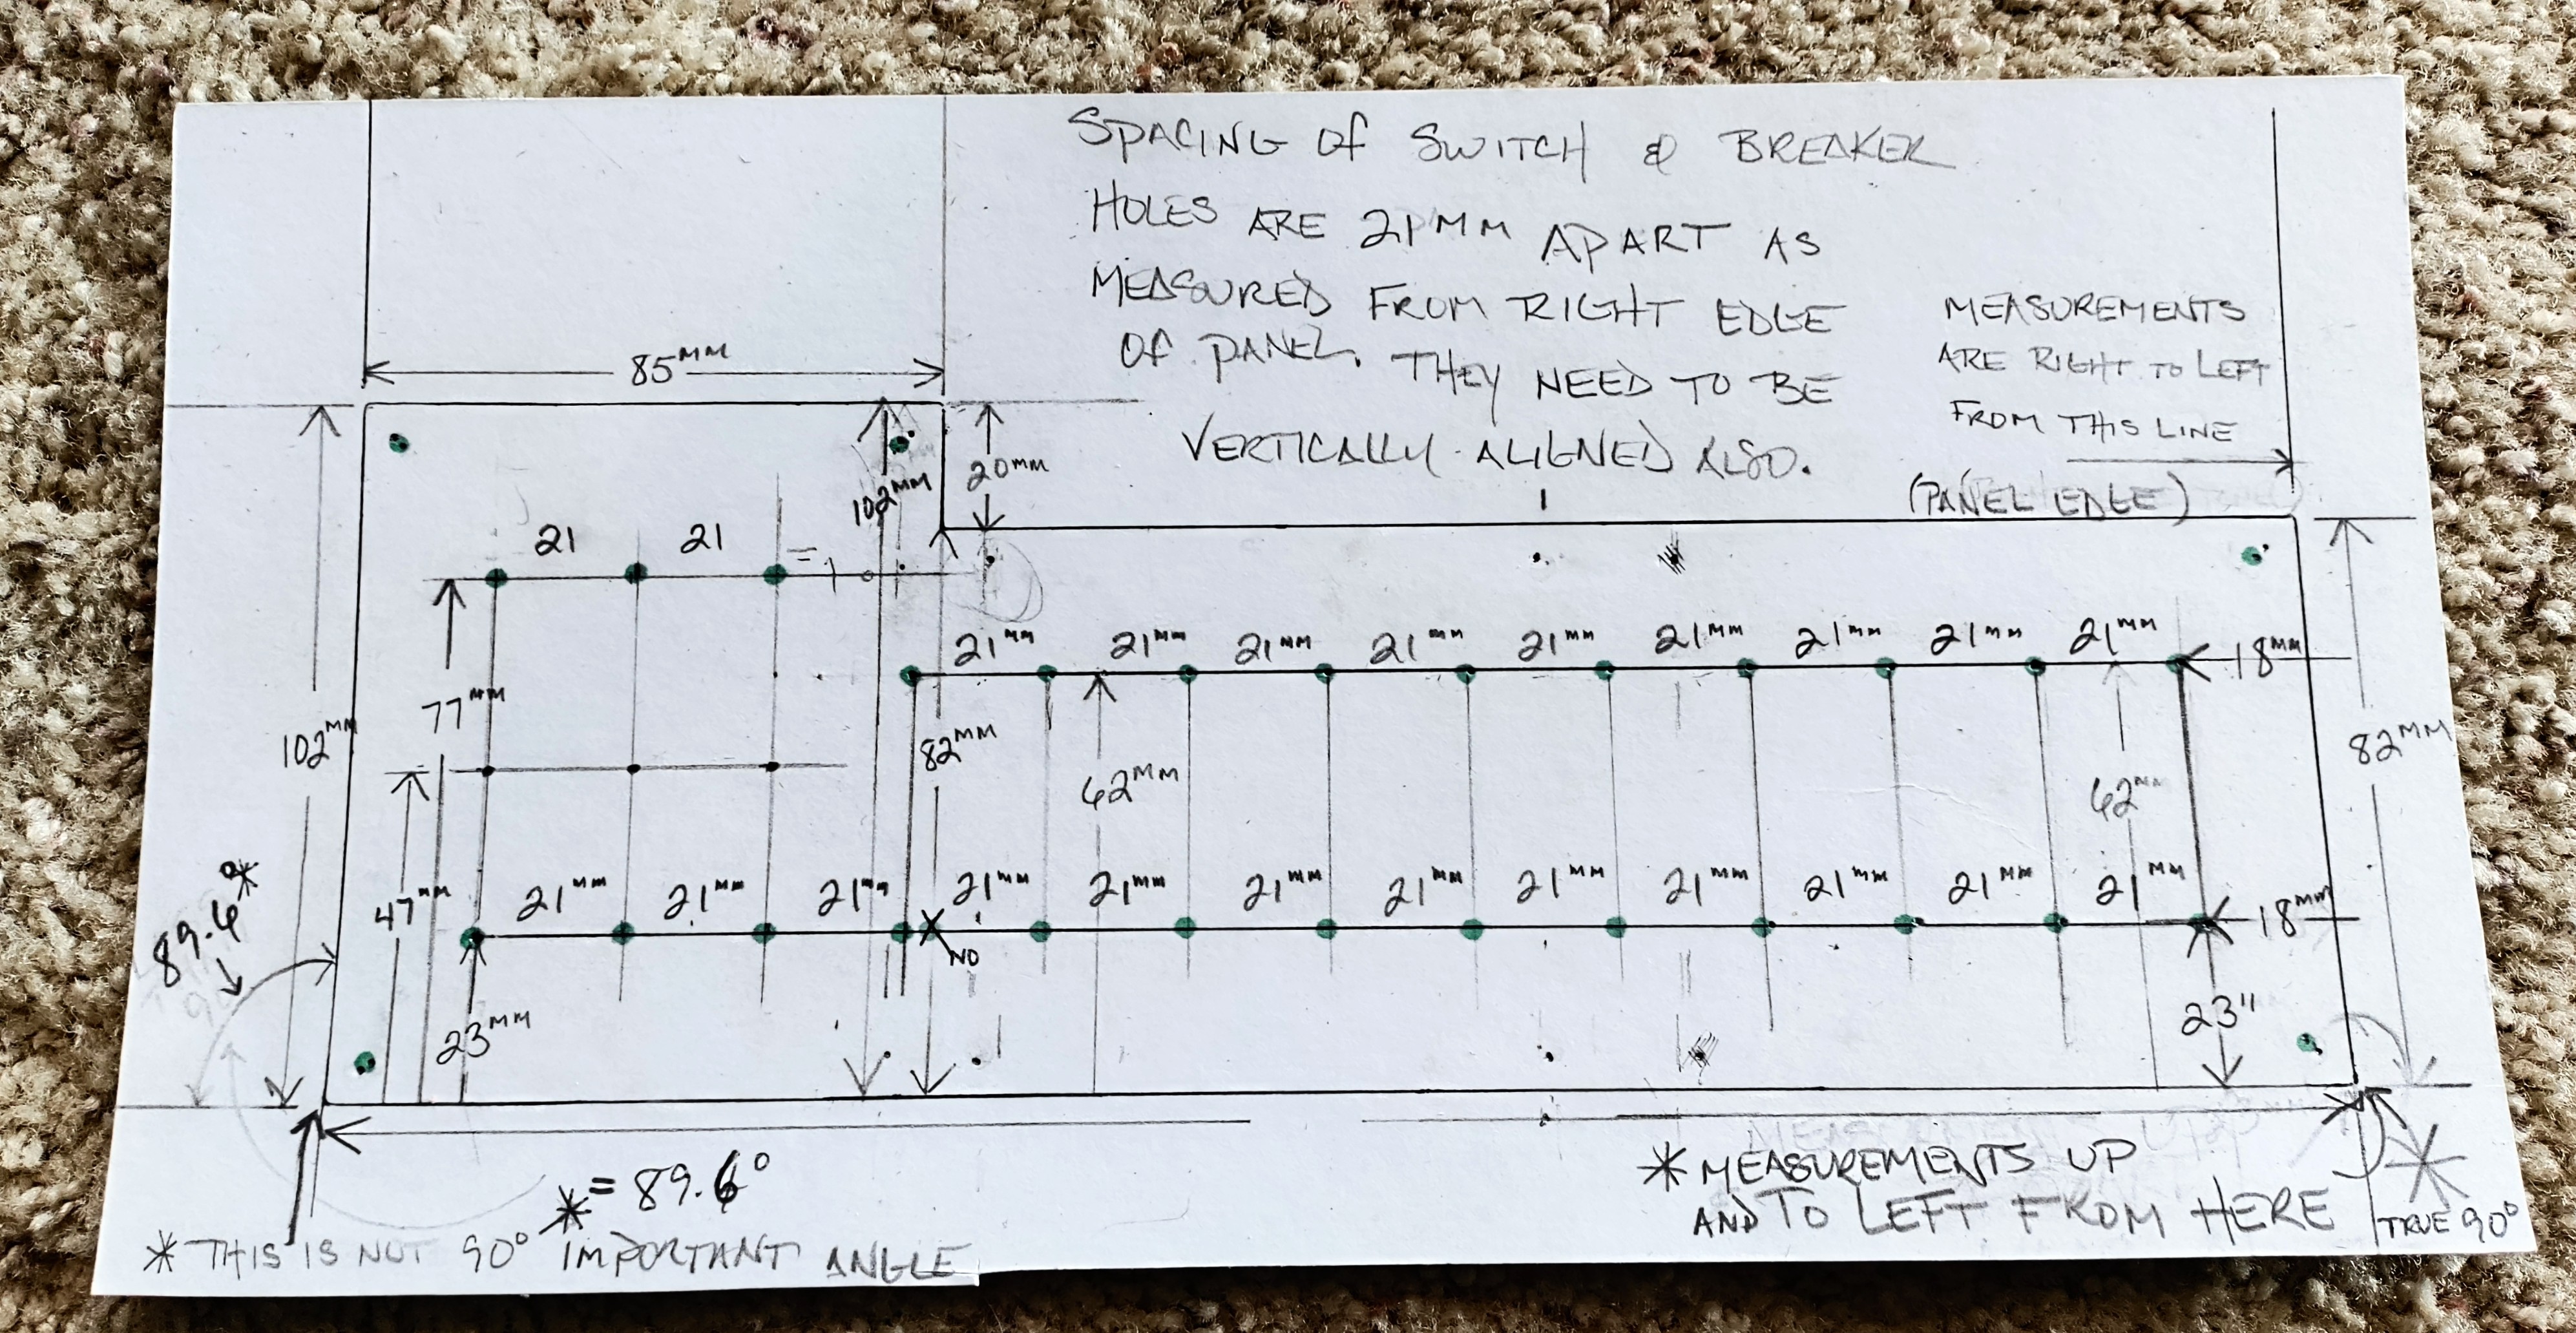 SPACING OF SWITCH & BREAKER
HOLES ARE 21MM APART AS
MEASURED FROM RIGHT EDGE
OF PANEL. THEY NEED TO BE
VERTICALLY ALIGNED ALSO.
MEASUREMENTS
ARE RIGHT TO LEFT
FROM THIS LINE
(PANEL EDGE)
85MM
20MM
102MM
21 21
21MM 21MM 21MM 21MM 21MM 21MM 21MM 21MM 21MM
18MM
77MM
102MM
82MM
62MM
62MM
82MM
47MM
21MM 21MM 21MM 21MM 21MM 21MM 21MM 21MM 21MM 21MM 21MM 21MM
18MM
NO
89.6°*
23MM
23"
*= 89.6°
* THIS IS NOT 90° * IMPORTANT ANGLE
* MEASUREMENTS UP
AND TO LEFT FROM HERE
* TRUE 90°